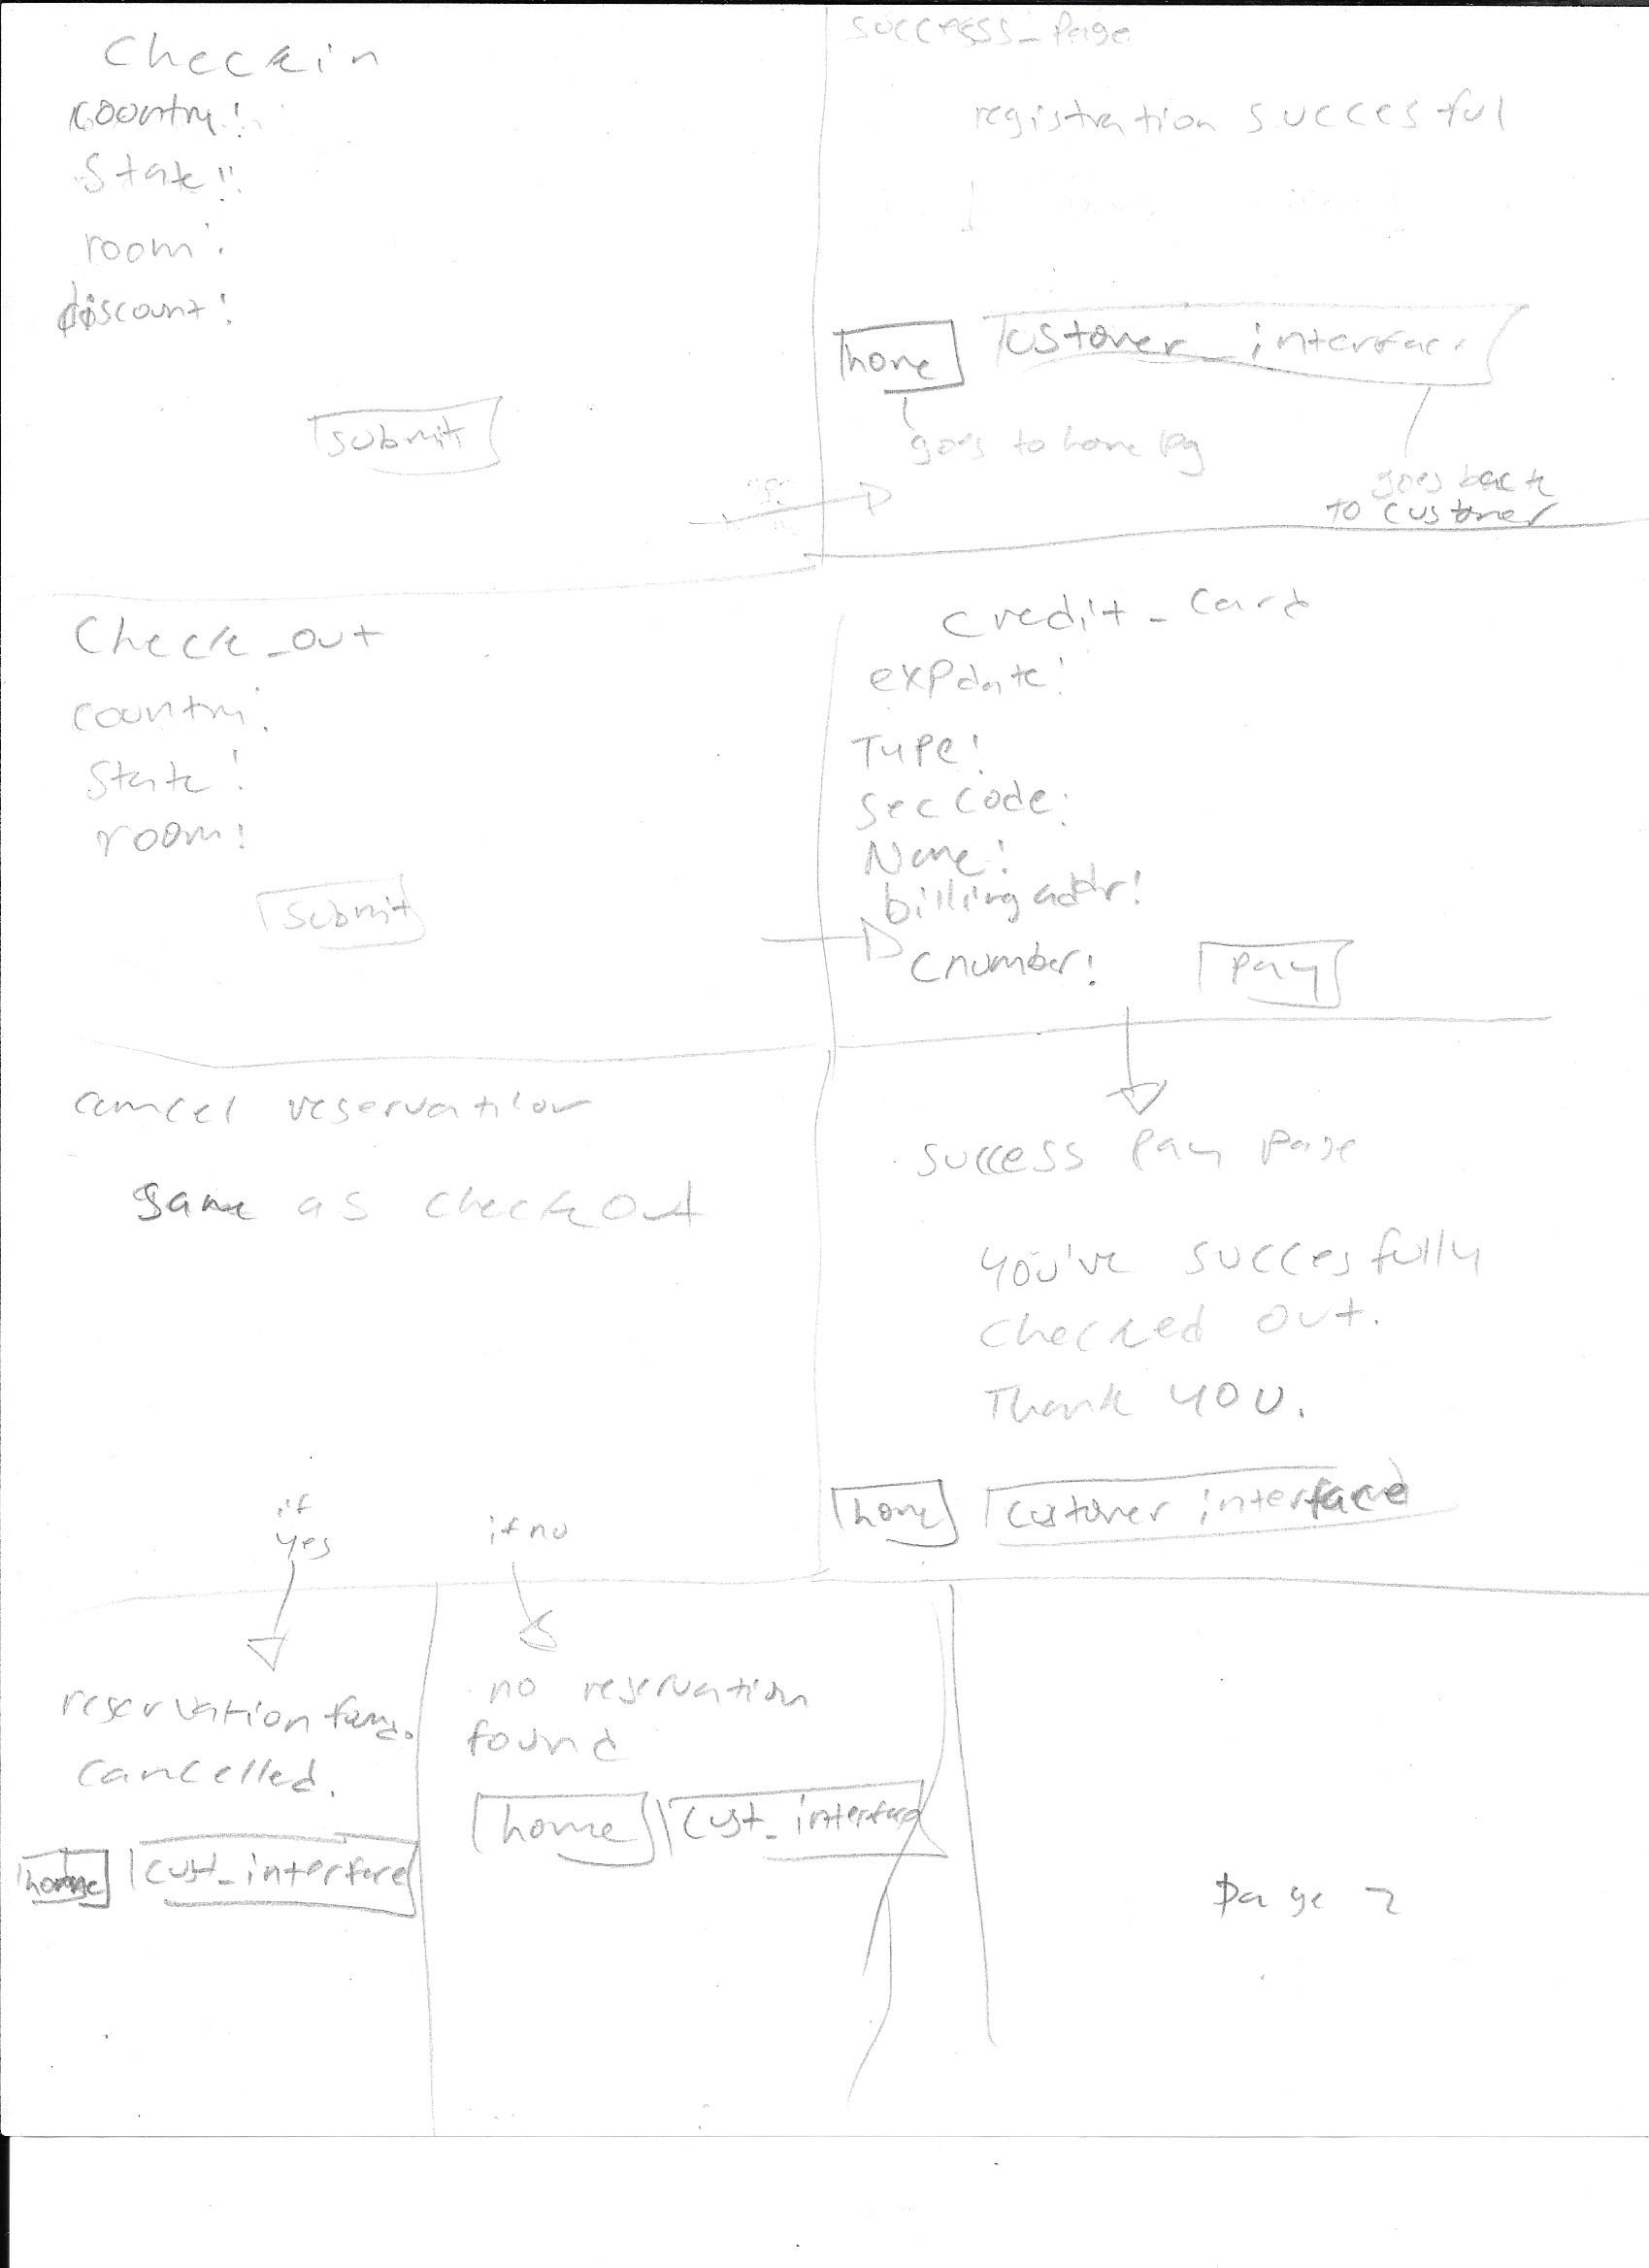 Checkin
country:
State:
room:
discount:
submit
success_page
registration succesful
home
customer_interface
goes to home pg
goes back
to customer
Check_out
country:
State:
room:
submit
credit_card
expdate:
Type:
sec code:
Name:
billing addr:
cnumber:
pay
cancel reservation
same as checkout
if
yes
if no
success pay page
you've succesfully
checked out.
Thank you.
home
customer interface
reservation found.
cancelled.
home
cust_interface
no reservation
found
home
cust_interface
page 2